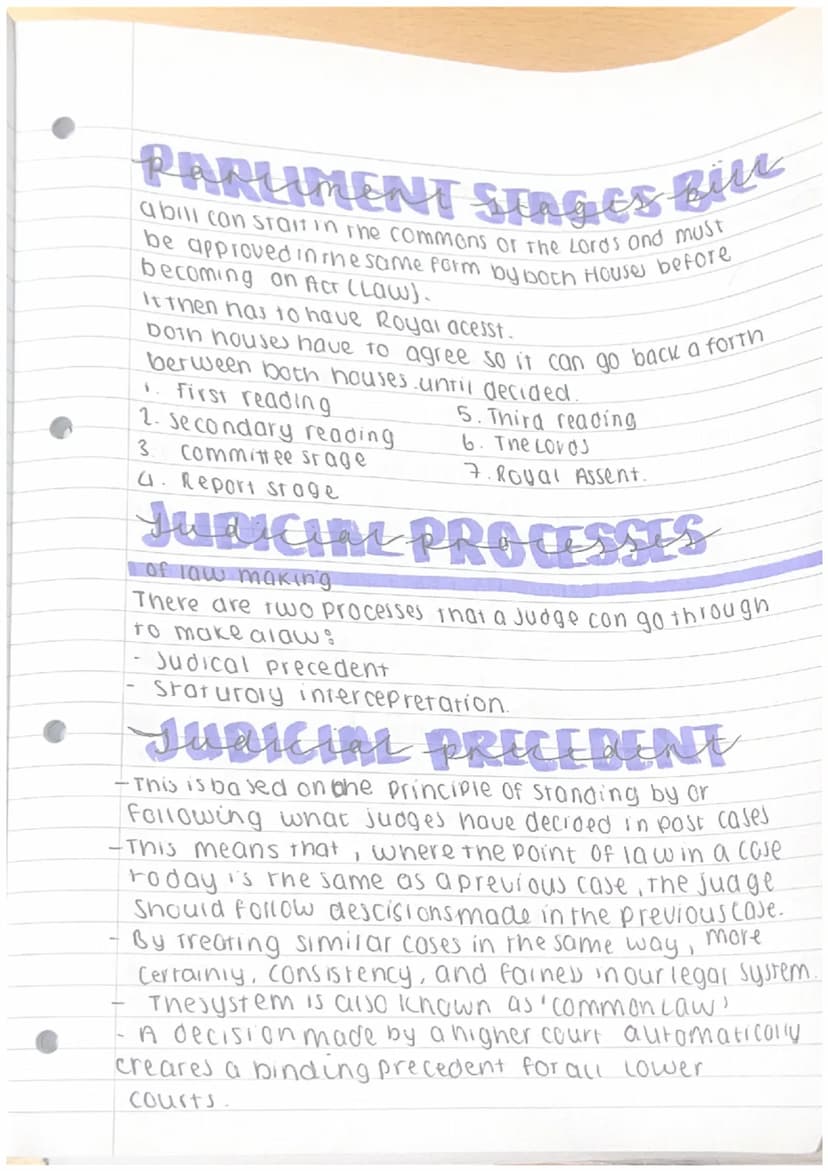 Parliment stages Bill
a bill can start in the commons or the Lords and must
be approved in the same form by both Houses before
becoming an Act (Law).
It then has to have Royal acesst.
both houses have to agree so it can go back a forth
between both houses until decided.
1. First reading
2. Secondary reading
3. Committee stage
4. Report stage
5. Third reading
6. The Lords
7. Royal Assent.
Judicial Processes
of law making
There are two processes that a Judge can go through
to make a law:
- Judical precedent
- Staturoly intercepretation.
Judicial precedent
- This is based on the principle of standing by or
Following what judges have decided in past cases
- This means that, where the point of law in a case
today is the same as a previous case, the judge
should follow descisions made in the previous case.
- By treating similar cases in the same way, more
certainly, consistency, and fairness in our legal system.
- The system is also known as 'common law'
- A decision made by a higher court automatically
creares a binding precedent for all lower
courts.